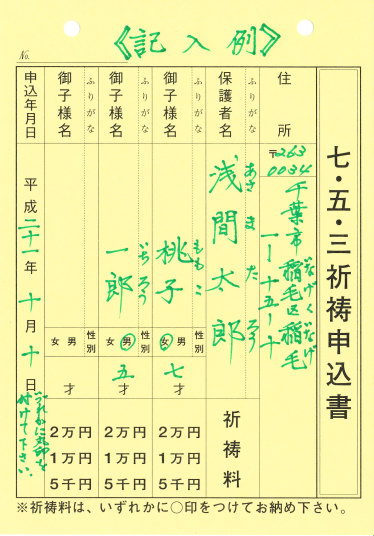 《記入例》
No.
七・五・三祈祷申込書
住所
〒263
0034
千葉市稲毛区稲毛
いなげく いなげ
一ー十五ー十
ふりがな
あさま たろう
保護者名
浅間太郎
祈祷料
ふりがな
ももこ
御子様名
桃子
性別
男
女
七才
2万円
1万円
5千円
ふりがな
いちろう
御子様名
一郎
性別
男
女
五才
2万円
1万円
5千円
ふりがな
御子様名
性別
男
女
才
2万円
1万円
5千円
申込年月日
平成二十一年十月十日
いずれかに丸印を
付けて下さい。
※祈祷料は、いずれかに○印をつけてお納め下さい。